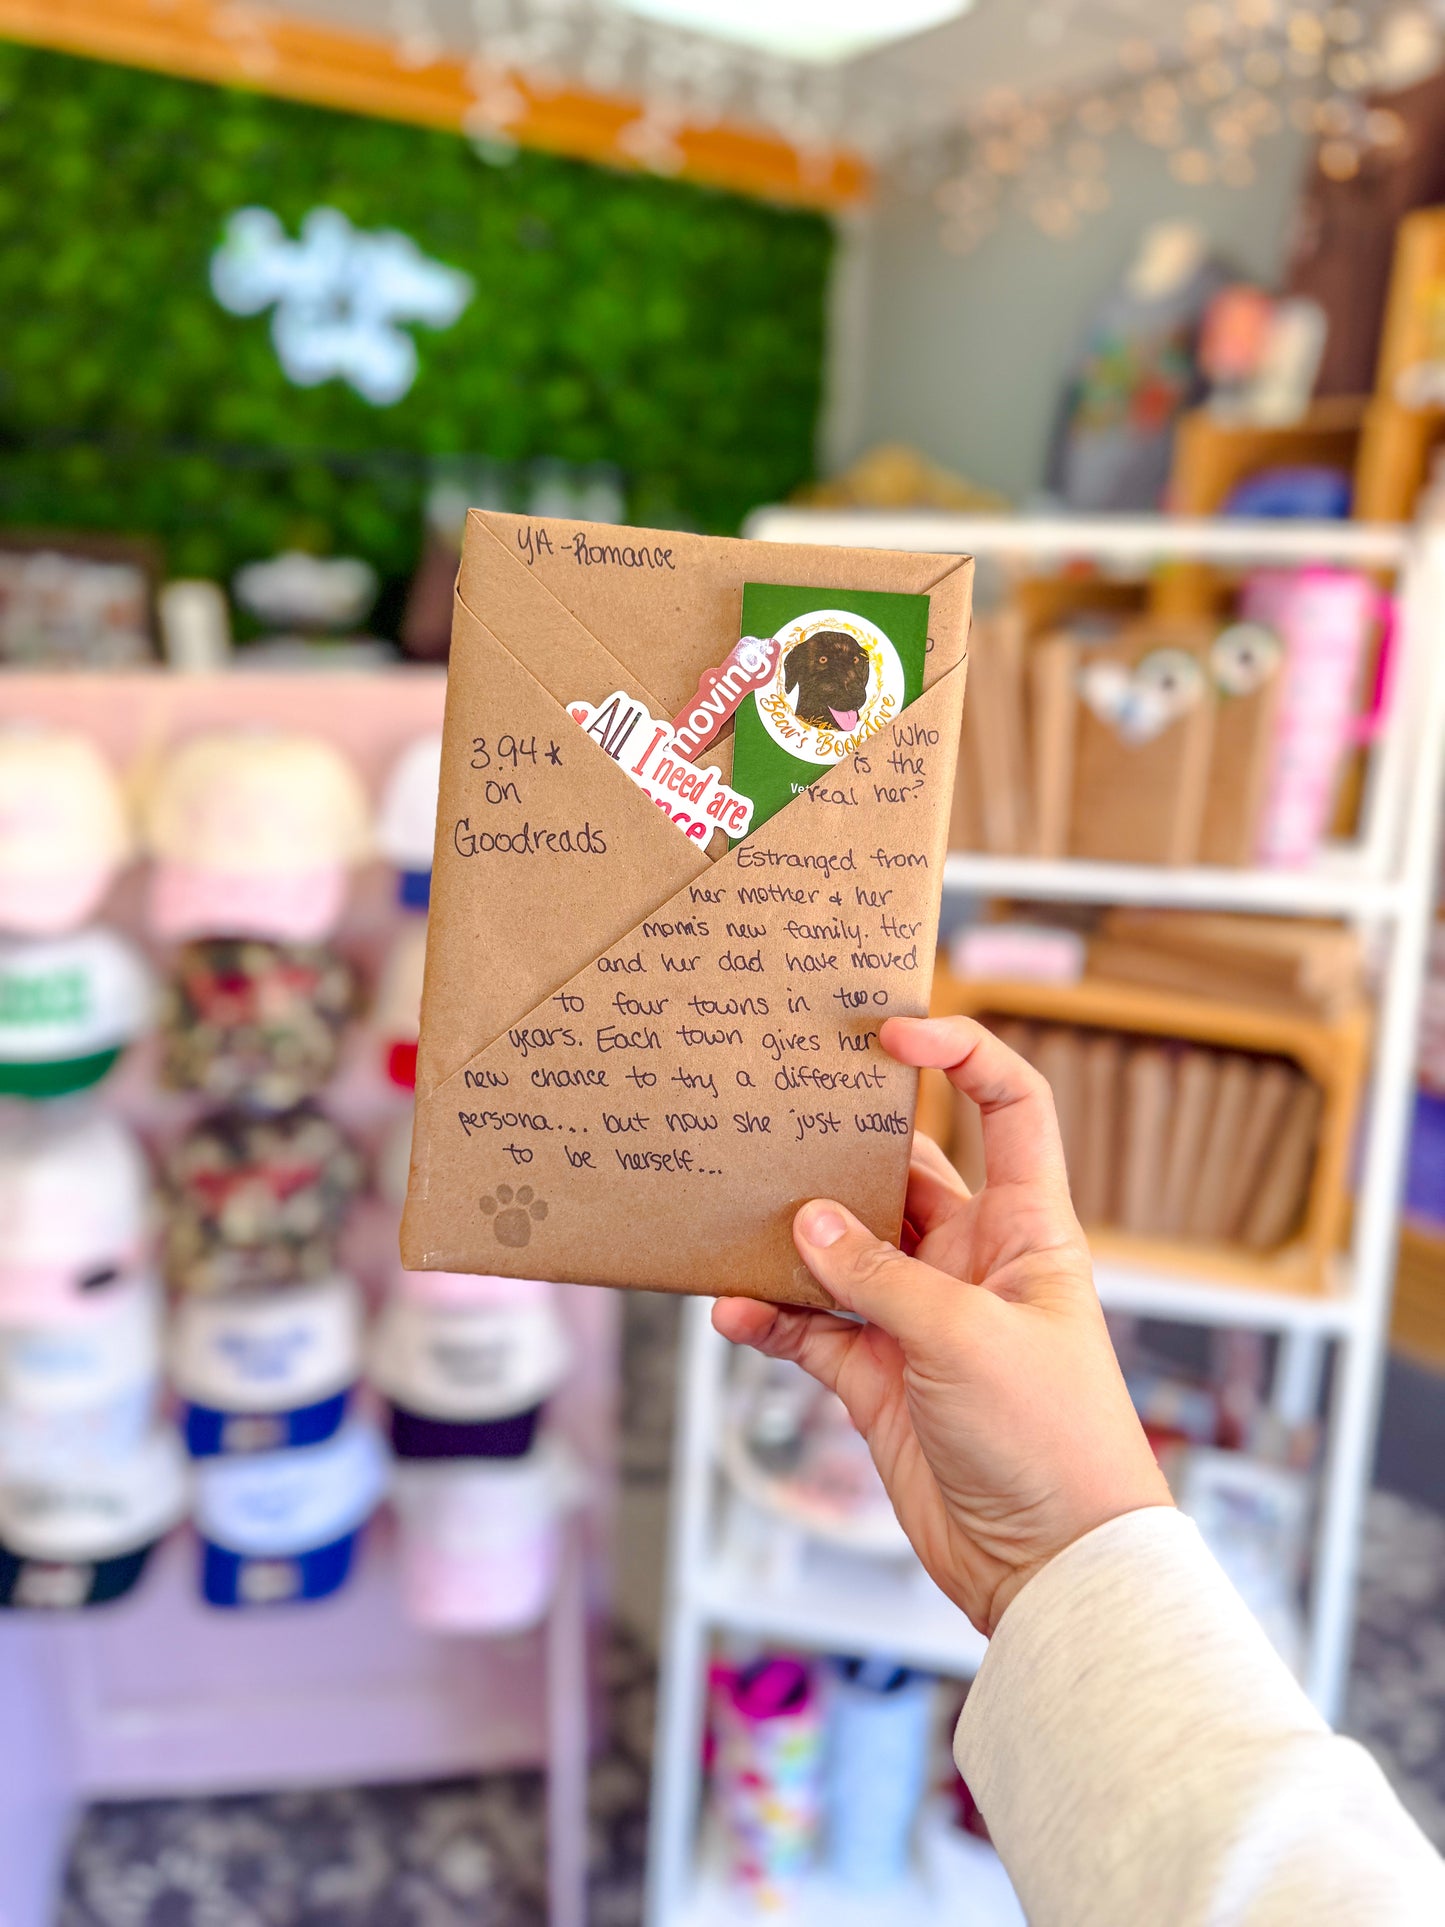 YA - Romance
3.94★
on
Goodreads
moving.
All I need are
Bear's Bookstore
Who
is the
real her?
Estranged from
her mother & her
mom's new family. Her
and her dad have moved
to four towns in two
years. Each town gives her
new chance to try a different
persona... but now she just wants
to be herself...